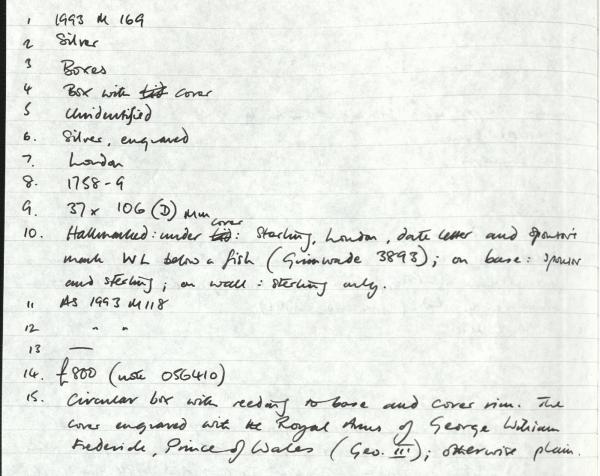 1 1993 M 169
2 Silver
3 Boxes
4 Box with lid cover
5 Unidentified
6. Silver, engraved
7. London
8. 1758-9
9. 37 x 106 (D) mm
cover
10. Hallmarked: under lid: Sterling, London, date letter and sponsor's
mark WL below a fish (Grimwade 3893); on base: sponsor
and sterling; on wall: sterling only.
11 As 1993 M 118
12 " "
13 —
14. £800 (note 056410)
15. Circular box with reeding to base and cover rim. The
cover engraved with the Royal Arms of George William
Frederick, Prince of Wales (Geo. III); otherwise plain.